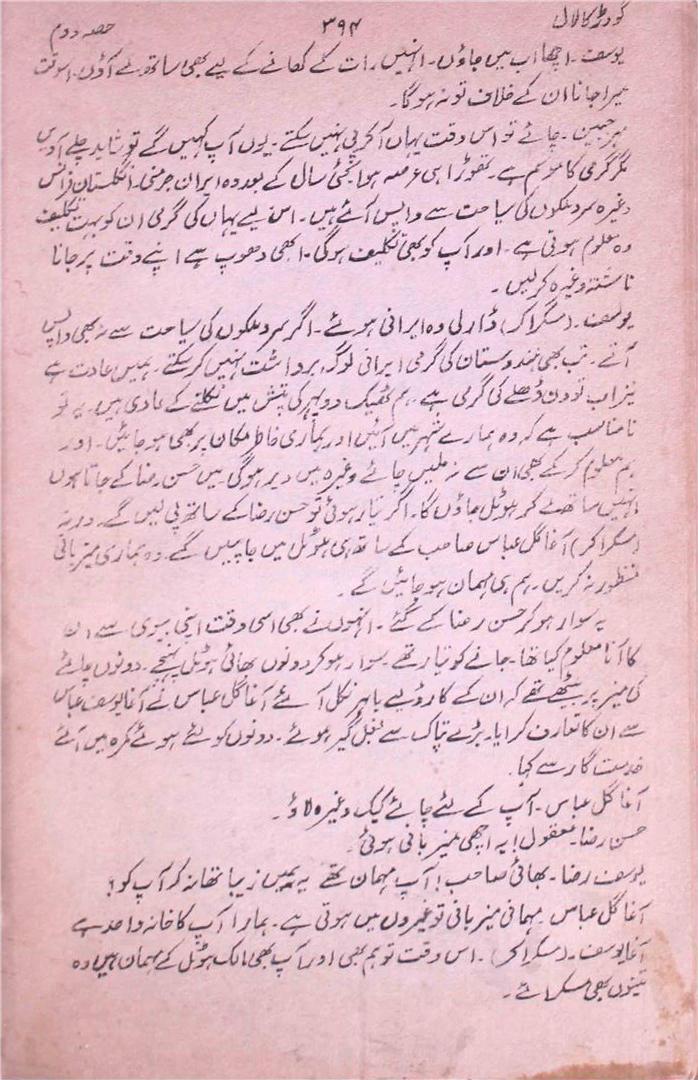 گودڑ کا لال ۳۹۴ حصہ دوم
یوسف۔ اچھا اب میں جاؤں۔ انہیں رات کے کھانے کے لیے بھی ساتھ لے آؤں۔ اسوقت
میرا جانا ان کے خلاف تو نہ ہوگا۔
مہ جبین۔ چائے تو اس وقت یہاں آکر پی نہیں سکتے۔ یوں آپ کہیں گے تو شاید چلے آویں
مگر گرمی کا موسم ہے۔ تھوڑا ہی عرصہ ہوا کئی سال کے بعد وہ ایران جرمنی۔ انگلستان فرانس
وغیرہ سرد ملکوں کی سیاحت سے واپس آئے ہیں۔ اس لیے یہاں کی گرمی ان کو بہت تکلیف
دہ معلوم ہوتی ہے۔ اور آپ کو بھی تکلیف ہوگی۔ ابھی دھوپ ہے اپنے وقت پر جانا
ناشتہ وغیرہ کرلیں۔
یوسف۔ (مسکرا کر) ڈارلی وہ ایرانی ہوئے۔ اگر سرد ملکوں کی سیاحت سے نہ بھی واپس
آتے۔ تب بھی ہندوستان کی گرمی ایرانی لوگ برداشت نہیں کرسکتے۔ ہمیں عادت ہے
نیز اب تو دن ڈھلے کی گرمی ہے۔ ہم ٹھیک دوپہر کی تپش میں نکلنے کے عادی ہیں۔ یہ تو
نامناسب ہے کہ وہ ہمارے شہر میں آئیں اور ہماری خاطر مکان پر بھی ہو جائیں۔ اور
ہم معلوم کرکے بھی ان سے نہ ملیں چائے وغیرہ میں دیر ہوگی میں حسن رضا کے جاتا ہوں
انہیں ساتھ لے کر ہوٹل جاؤں گا۔ اگر تیار ہوئی تو حسن رضا کے ساتھ پی لیں گے۔ ورنہ
(مسکرا کر) آغا گل عباس صاحب کے ساتھ ہی ہوٹل میں جا پیئں گے۔ وہ ہماری میزبانی
منظور نہ کریں۔ ہم ہی مہمان ہو جائیں گے۔
یہ سوار ہو کر حسن رضا کے گئے۔ انہوں نے بھی اسی وقت اپنی بیوی سے ان
کا آنا معلوم کیا تھا۔ جانے کو تیار تھے۔ سوار ہو کر دونوں بھائی ہوٹل پہنچے۔ دونوں چائے
کی میز پر بیٹھے تھے کہ ان کے کارڈ لیے باہر نکل آئے آغا گل عباس نے آغا یوسف عباس
سے ان کا تعارف کرایا۔ بڑے تپاک سے بغل گیر ہوئے۔ دونوں کو لئے ہوئے کمرہ میں آئے
خدمت گار سے کہا۔
آغا گل عباس۔ آپ کے لئے چائے کیک وغیرہ لاؤ۔
حسن رضا۔ معقول! یہ اچھی میزبانی ہوئی۔
یوسف رضا۔ بھائی صاحب! آپ مہمان تھے یہ ہمیں زیبا تھا نہ کہ آپ کو!
آغا گل عباس۔ مہمانی میزبانی تو غیروں میں ہوتی ہے۔ ہمارا آپ کا خانہ واحد ہے
آغا یوسف۔ (مسکرا کر)۔ اس وقت تو ہم بھی اور آپ بھی مالک ہوٹل کے مہمان ہیں وہ
تینوں بھی مسکرائے۔